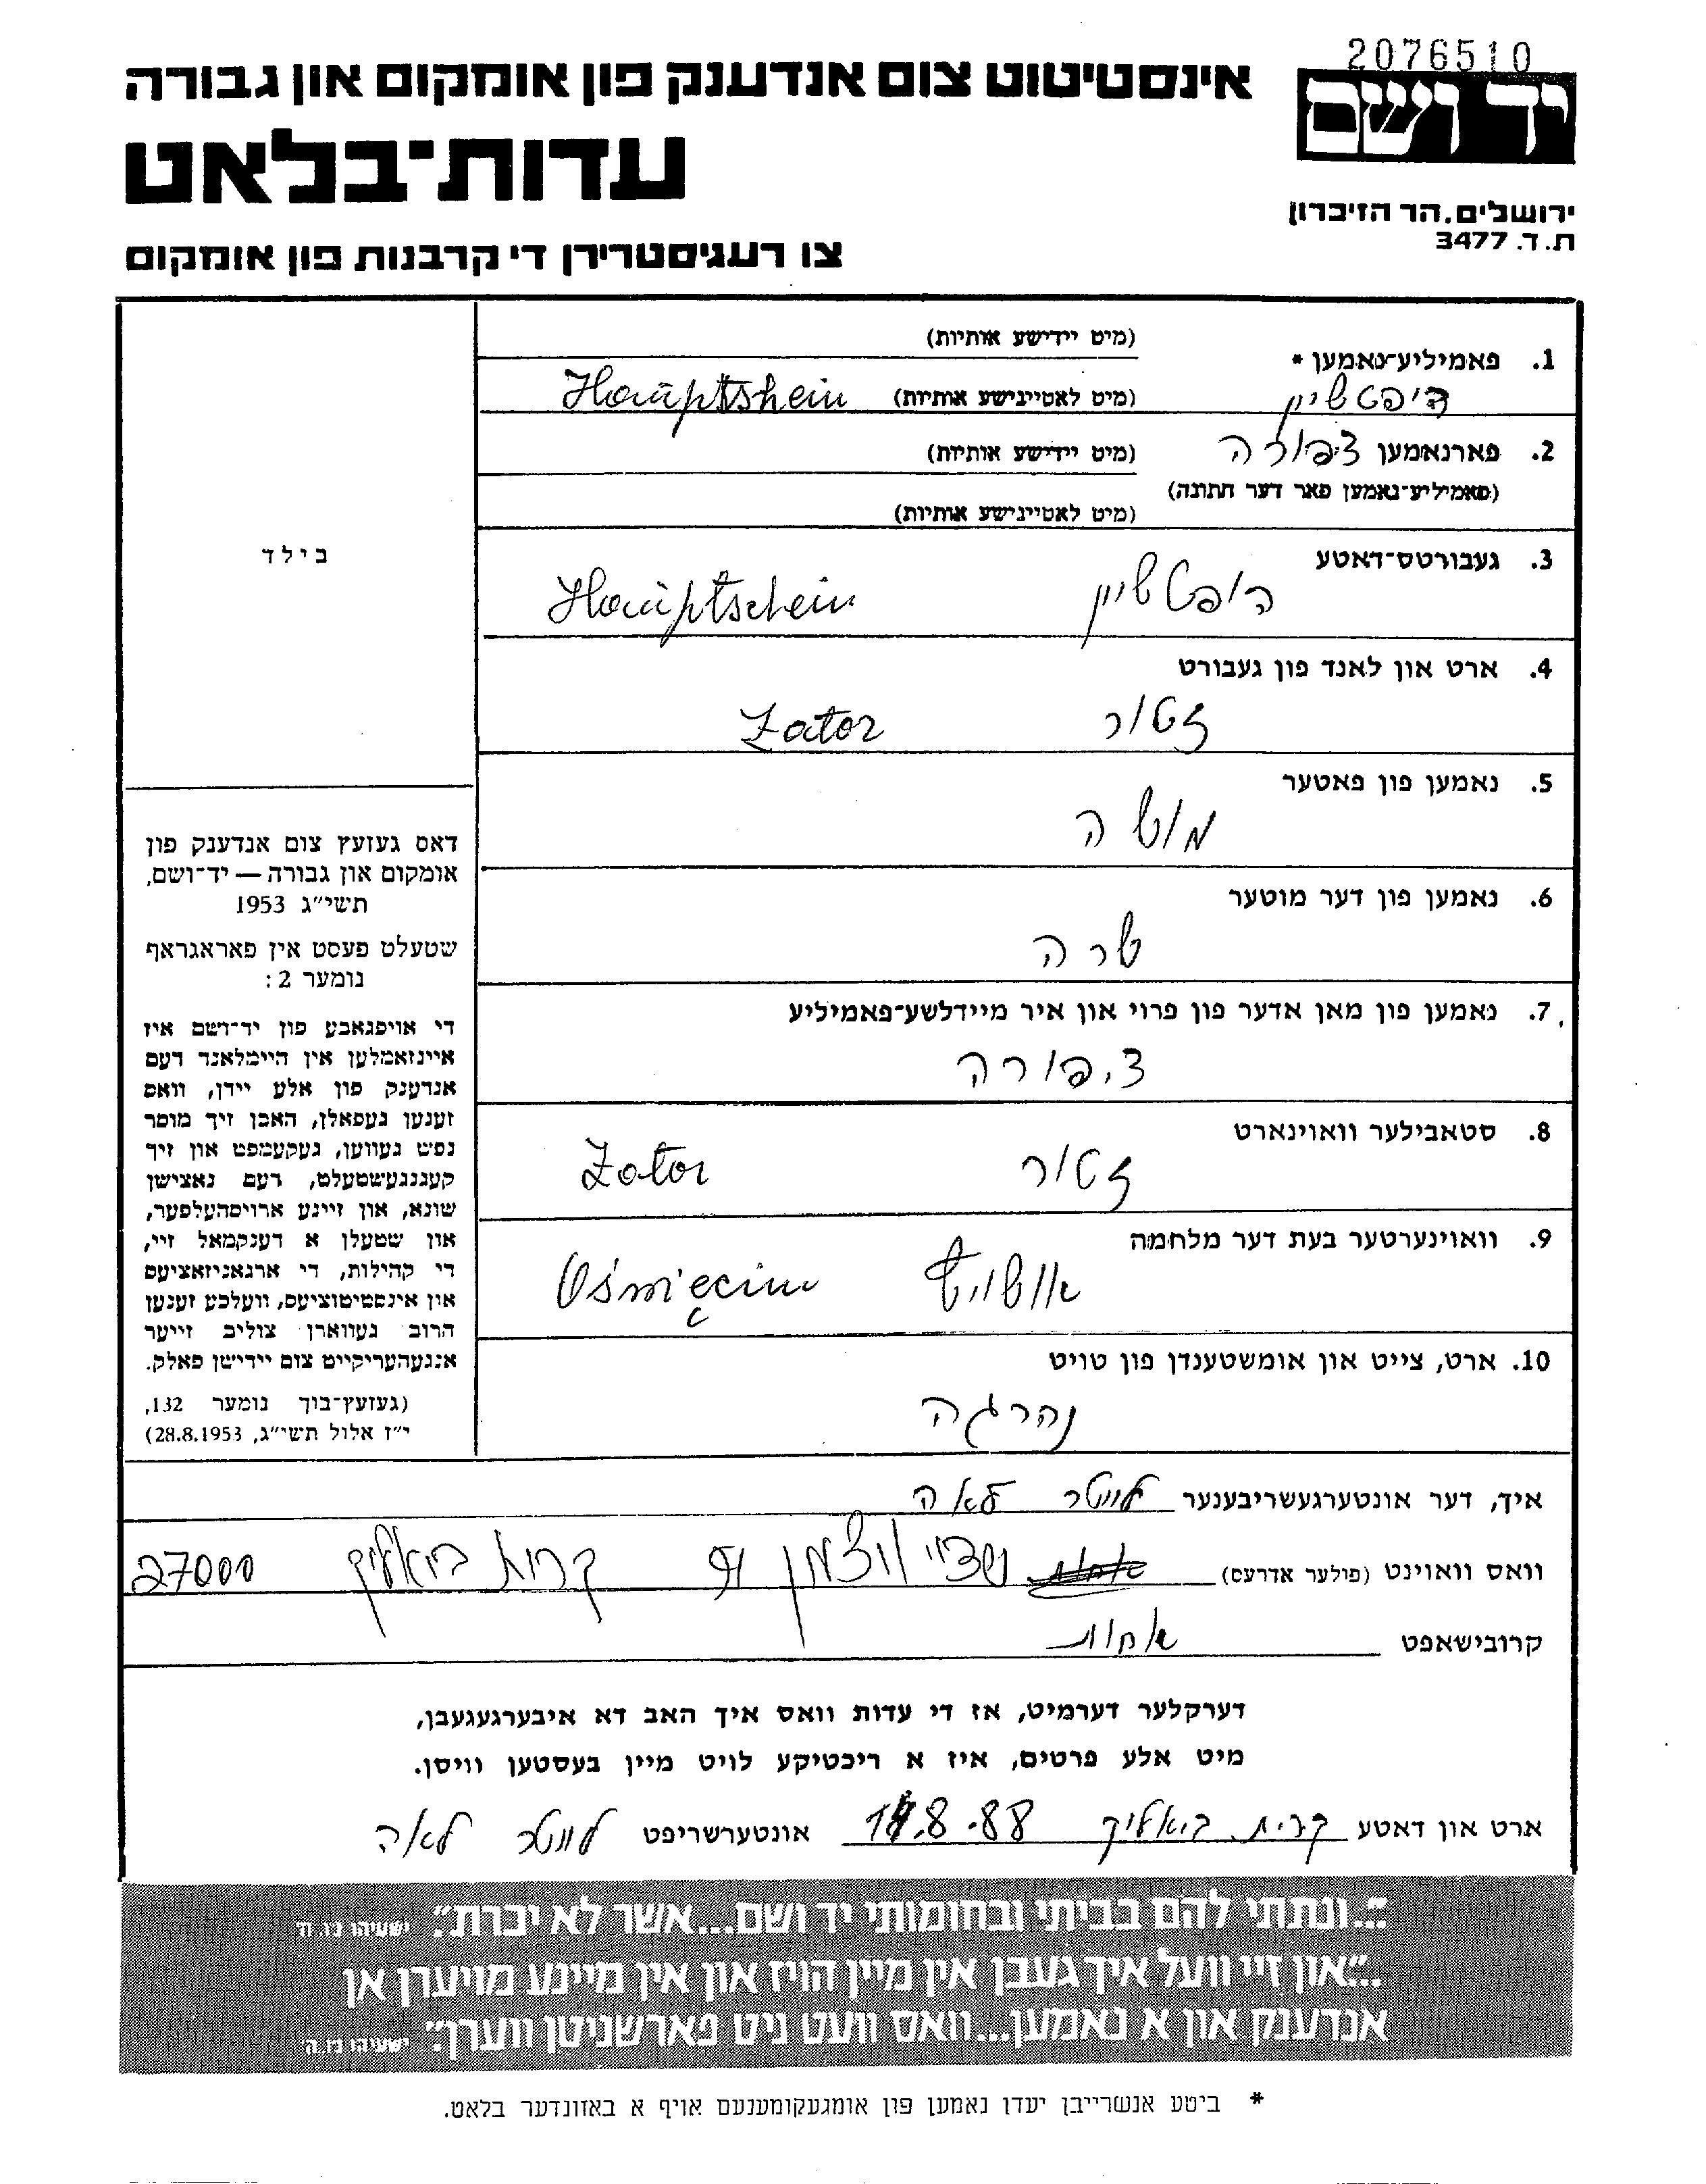 2076510
אינסטיטוט צום אנדענק פון אומקום און גבורה
יד ושם
עדות־בלאט
ירושלים, הר הזיכרון
ת.ד. 3477
צו רעגיסטרירן די קרבנות פון אומקום
1. פאמיליע־נאמען *
(מיט יידישע אותיות)
הייפטשיין
(מיט לאטיינישע אותיות) Hauptshein
2. פארנאמען ציפורה (מיט יידישע אותיות)
(פאמיליע־נאמען פאר דער חתונה)
(מיט לאטיינישע אותיות)
3. געבורטס־דאטע
הופטשיין Hauptschein
4. ארט און לאנד פון געבורט
זטור Zator
5. נאמען פון פאטער
משה
6. נאמען פון דער מוטער
שרה
7. נאמען פון מאן אדער פון פרוי און איר מיידלשע־פאמיליע
ציפורה
8. סטאבילער וואוינארט
זטור Zator
9. וואוינערטער בעת דער מלחמה
אושוויץ Oświęcim
10. ארט, צייט און אומשטענדן פון טויט
נהרגה
בילד
דאס געזעץ צום אנדענק פון
אומקום און גבורה — יד־ושם,
תשי״ג 1953
שטעלט פעסט אין פאראגראף
נומער 2:
די אויפגאבע פון יד־ושם איז
איינזאמלען אין היימלאנד דעם
אנדענק פון אלע יידן, וואס
זענען געפאלן, האבן זיך מוסר
נפש געווען, געקעמפט און זיך
קעגנגעשטעלט, דעם נאצישן
שונא, און זיינע ארויסהעלפער,
און שטעלן א דענקמאל זיי,
די קהילות, די ארגאניזאציעס
און אינסטיטוציעס, וועלכע זענען
חרוב געווארן צוליב זייער
אנגעהעריקייט צום יידישן פאלק.
(געזעץ־בוך נומער 132,
י״ז אלול תשי״ג, 28.8.1953)
איך, דער אונטערגעשריבענער לאה
וואס וואוינט (פולער אדרעס) קרית ביאליק 27000
קרובישאפט אחות
דערקלער דערמיט, אז די עדות וואס איך האב דא איבערגעגעבן,
מיט אלע פרטים, איז א ריכטיקע לויט מיין בעסטען וויסן.
ארט און דאטע קרית ביאליק 14.8.88 אונטערשריפט לאה
״...ונתתי להם בביתי ובחומותי יד ושם...אשר לא יכרת״. ישעיהו נ״ו, ה׳
״...און זיי וועל איך געבן אין מיין הויז און אין מיינע מויערן אן
אנדענק און א נאמען...וואס וועט ניט פארשניטן ווערן״. ישעיהו נ״ו, ה׳
* ביטע אנשרייבן יעדן נאמען פון אומגעקומענעם אויף א באזונדער בלאט.